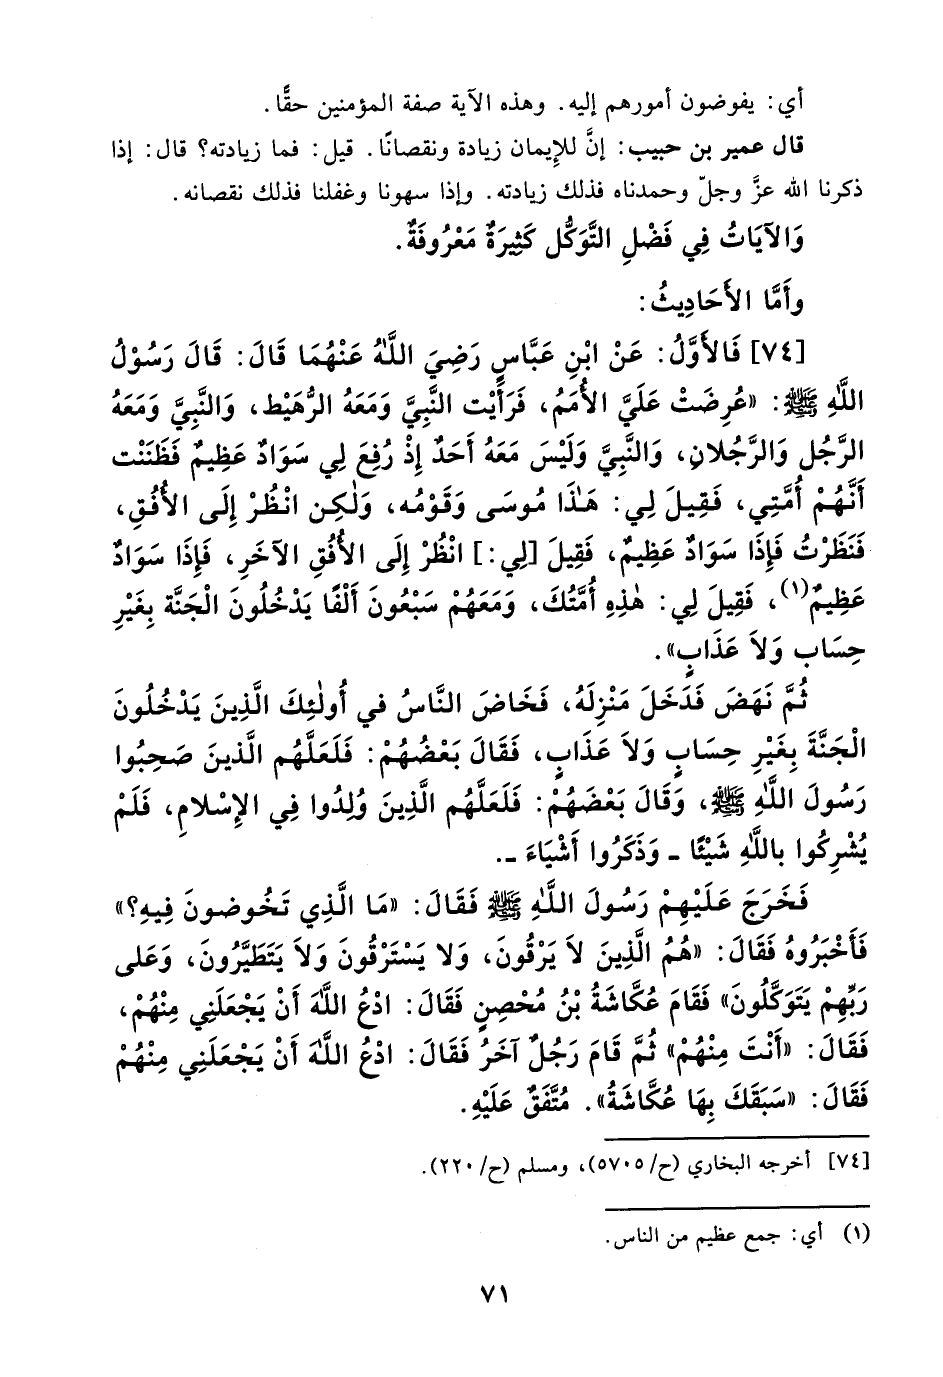 أي: يفوضون أمورهم إليه. وهذه الآية صفة المؤمنين حقًّا.
قال عمير بن حبيب: إنَّ للإيمان زيادة ونقصانًا. قيل: فما زيادته؟ قال: إذا
ذكرنا الله عزَّ وجلّ وحمدناه فذلك زيادته. وإذا سهونا وغفلنا فذلك نقصانه.
وَالآيَاتُ فِي فَضْلِ التَّوَكُّل كَثِيرَةٌ مَعْرُوفَةٌ.
وأَمَّا الأَحَادِيثُ:
[٧٤] فَالأَوَّلُ: عَنْ ابْنِ عَبَّاسٍ رَضِيَ اللَّهُ عَنْهُمَا قَالَ: قَالَ رَسُوْلُ
اللَّهِ ﷺ: «عُرِضَتْ عَلَيَّ الأُمَمُ، فَرَأَيْت النَّبِيَّ وَمَعَهُ الرُّهَيْط، وَالنَّبِيَّ وَمَعَهُ
الرَّجُل وَالرَّجُلانِ، وَالنَّبِيَّ وَلَيْسَ مَعَهُ أَحَدٌ إِذْ رُفِعَ لِي سَوَادٌ عَظِيمٌ فَظَنَنْت
أَنَّهُمْ أُمَّتِي، فَقِيلَ لِي: هَـٰذَا مُوسَى وَقَوْمُه، وَلَـٰكِن انْظُرْ إِلَى الأُفُقِ،
فَنَظَرْتُ فَإِذَا سَوَادٌ عَظِيمٌ، فَقِيلَ [لِي:] انْظُرْ إِلَى الأُفُقِ الآخَرِ، فَإِذَا سَوَادٌ
عَظِيمٌ(١)، فَقِيلَ لِي: هٰذِهِ أُمَّتُكَ، وَمَعَهُمْ سَبْعُونَ أَلْفًا يَدْخُلُونَ الْجَنَّة بِغَيْرِ
حِسَابٍ وَلاَ عَذَابٍ».
ثُمَّ نَهَضَ فَدَخَلَ مَنْزِلَهُ، فَخَاضَ النَّاسُ في أُولٰئِكَ الَّذِينَ يَدْخُلُونَ
الْجَنَّةَ بِغَيْرِ حِسَابٍ وَلاَ عَذَابٍ، فَقَالَ بَعْضُهُمْ: فَلَعَلَّهُم الَّذينَ صَحِبُوا
رَسُولَ اللَّهِ ﷺ، وَقَالَ بَعْضُهُمْ: فَلَعَلَّهُم الَّذِينَ وُلِدُوا فِي الإِسْلامِ، فَلَمْ
يُشْرِكُوا باللَّهِ شَيْئًا ـ وَذَكَرُوا أَشْيَاءَ ـ.
فَخَرَجَ عَلَيْهِمْ رَسُولَ اللَّهِ ﷺ فَقَالَ: «مَا الَّذِي تَخُوضونَ فِيهِ؟»
فَأَخْبَرُوهُ فَقَالَ: «هُمُ الَّذِينَ لاَ يَرْقُونَ، وَلا يَسْتَرْقُونَ وَلاَ يَتَطَيَّرُونَ، وَعَلى
رَبِّهِمْ يَتَوَكَّلُونَ» فَقَامَ عُكَّاشَةُ بْنُ مُحْصِنٍ فَقَالَ: ادْعُ اللَّهَ أَنْ يَجْعَلَنِي مِنْهُمْ،
فَقَالَ: «أَنْتَ مِنْهُمْ» ثُمَّ قَامَ رَجُلٌ آخَرُ فَقَالَ: ادْعُ اللَّهَ أَنْ يَجْعَلَنِي مِنْهُمْ
فَقَالَ: «سَبَقَكَ بِهَا عُكَّاشَةُ». مُتَّفَقٌ عَلَيْهِ.
[٧٤] أخرجه البخاري (ح/٥٧٠٥)، ومسلم (ح/٢٢٠).
(١) أي: جمع عظيم من الناس.
٧١